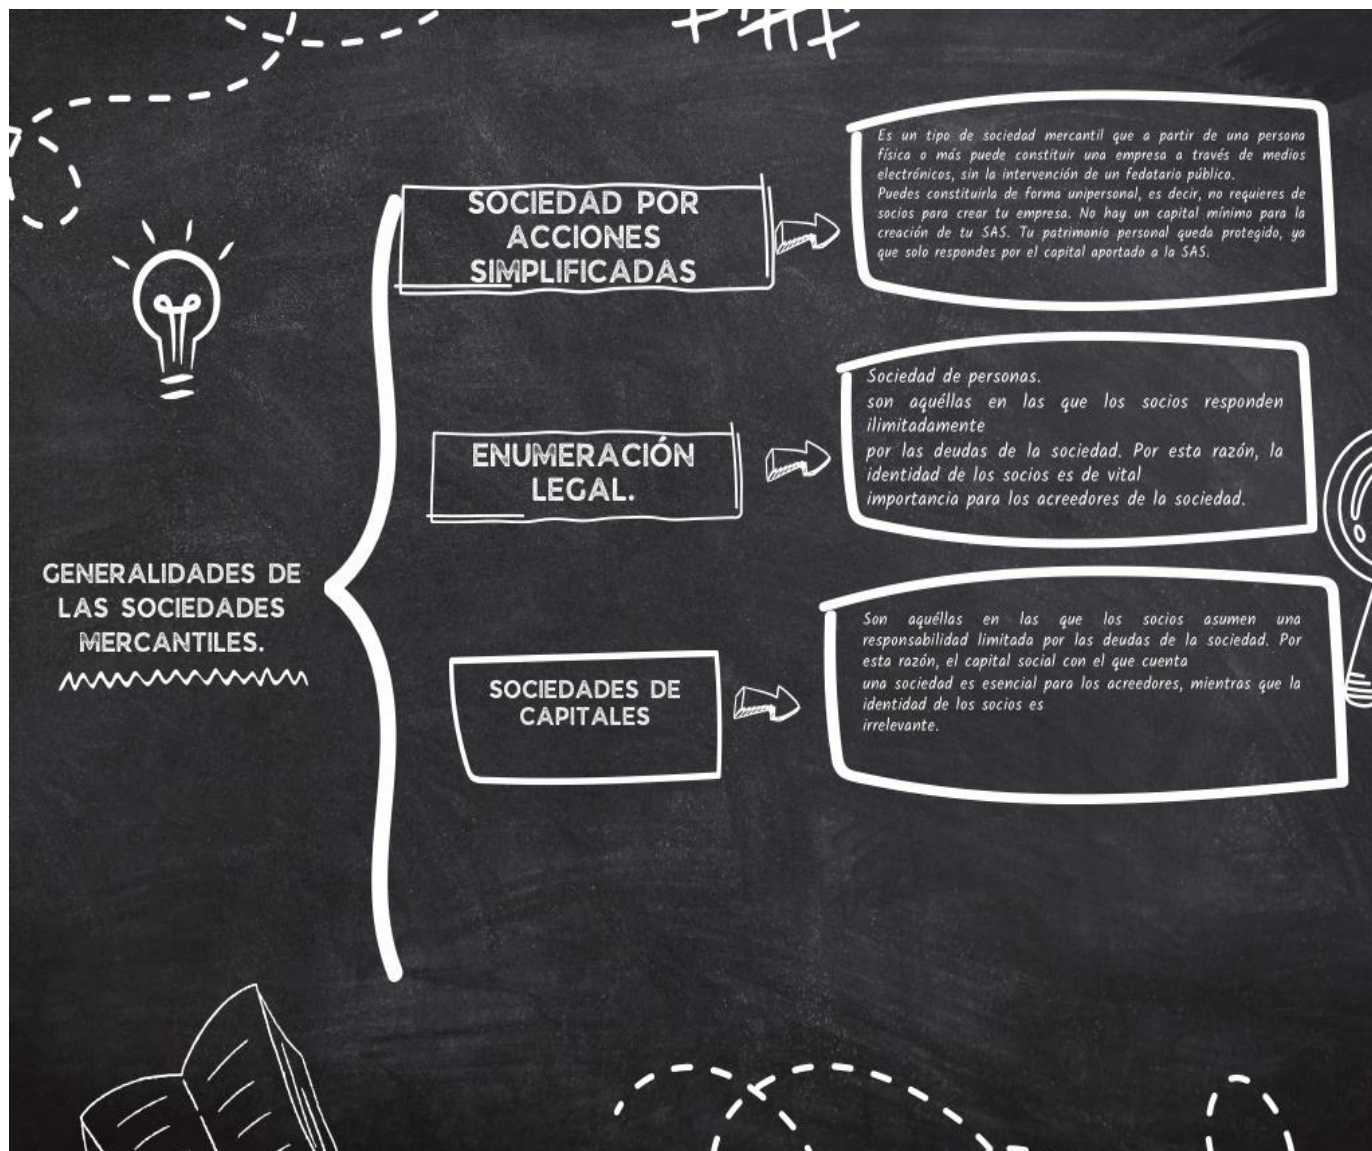 GENERALIDADES DE
LAS SOCIEDADES
MERCANTILES.
SOCIEDAD POR
ACCIONES
SIMPLIFICADAS
Es un tipo de sociedad mercantil que a partir de una persona
física o más puede constituir una empresa a través de medios
electrónicos, sin la intervención de un fedatario público.
Puedes constituirla de forma unipersonal, es decir, no requieres de
socios para crear tu empresa. No hay un capital mínimo para la
creación de tu SAS. Tu patrimonio personal queda protegido, ya
que solo respondes por el capital aportado a la SAS.
ENUMERACIÓN
LEGAL.
Sociedad de personas.
son aquéllas en las que los socios responden
ilimitadamente
por las deudas de la sociedad. Por esta razón, la
identidad de los socios es de vital
importancia para los acreedores de la sociedad.
SOCIEDADES DE
CAPITALES
Son aquéllas en las que los socios asumen una
responsabilidad limitada por las deudas de la sociedad. Por
esta razón, el capital social con el que cuenta
una sociedad es esencial para los acreedores, mientras que la
identidad de los socios es
irrelevante.